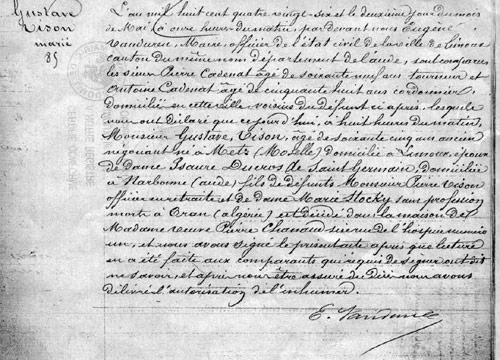 Gustave
Vison
marié
85
L'an mil huit cent quatre vingt-six et le deuxième jour du mois
de Mai à onze heures du matin, par devant nous Eugène
Vandure, Maire, officier de l'état civil de la ville de Limoux
canton du même nom département de l'aude, sont comparus
les sieurs Pierre Cadenat âgé de soixante neuf ans tourneur et
Antoine Cadenat âgé de cinquante huit ans cordonnier,
domiciliés en cette ville voisins du défunt ci après, lesquels
nous ont déclaré que ce jourd'hui, à huit heures du matin,
Monsieur Gustave Vison, âgé de soixante cinq ans ancien
négociant né à Metz (Moselle) domicilié à Limoux, époux
de Dame Isaure Ducros de Saint Germain, domiciliée
à Narbonne (aude) fils de défunts Monsieur Pierre Vison
officier en retraite et de dame Marie Stocky sans profession
morts à Oran (algérie) est décédé dans la maison de
Madame veuve Pierre Chanaud sise rue de l'hospice numéro
un, et nous avons signé le présent acte après que lecture
en a été faite aux comparants qui requis de signer ont dit
ne savoir, et après nous être assuré du décès nous avons
délivré l'autorisation de l'inhumer.